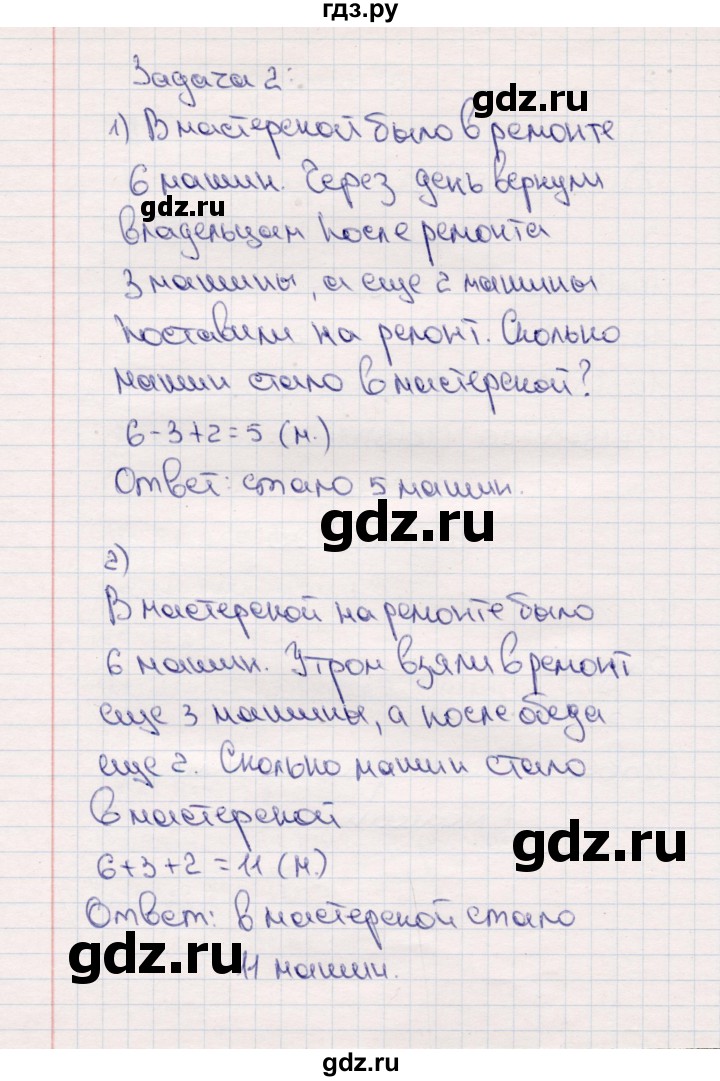 гдз.ру
Задача 2:
gdz.ru
1) В мастерской было в ремонте
6 машин. Через день вернули
gdz.ru
владельцам после ремонта
3 машины, а еще 2 машины
поставили на ремонт. Сколько
машин стало в мастерской?
6-3+2=5 (м.)
Ответ: стало 5 машин.
gdz.ru
2)
В мастерской на ремонте было
6 машин. Утром взяли в ремонт
еще 3 машины, а после обеда
еще 2. Сколько машин стало
в мастерской
gdz.ru
6+3+2=11 (м.)
Ответ: в мастерской стало
gdz.ru
11 машин.
gdz.ru